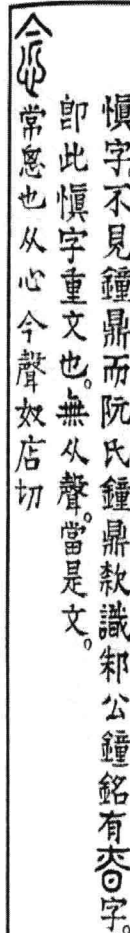 愼字不見鐘鼎而阮氏鐘鼎款識邾公鐘銘有昚字。
卽此愼字重文也。無从聲。當是文。
念 常思也从心今聲奴店切